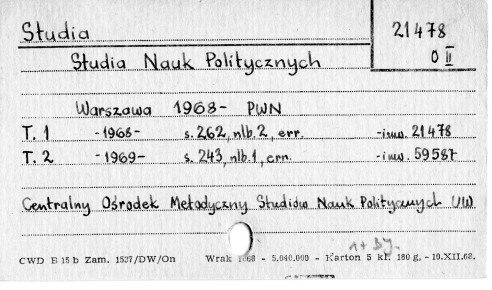 Studia
21478
O II
Studia Nauk Politycznych
Warszawa 1968- PWN
T. 1 -1968- s. 262, nlb. 2, err. -inw. 21478
T. 2 -1969- s. 243, nlb. 1, err. -inw. 59587
Centralny Ośrodek Metodyczny Studiów Nauk Politycznych UW
1+Dy.
CWD E 15 b Zam. 1537/DW/On Wrak 1068 - 5.040.000 - Karton 5 kl. 180 g, - 10.XII.68.